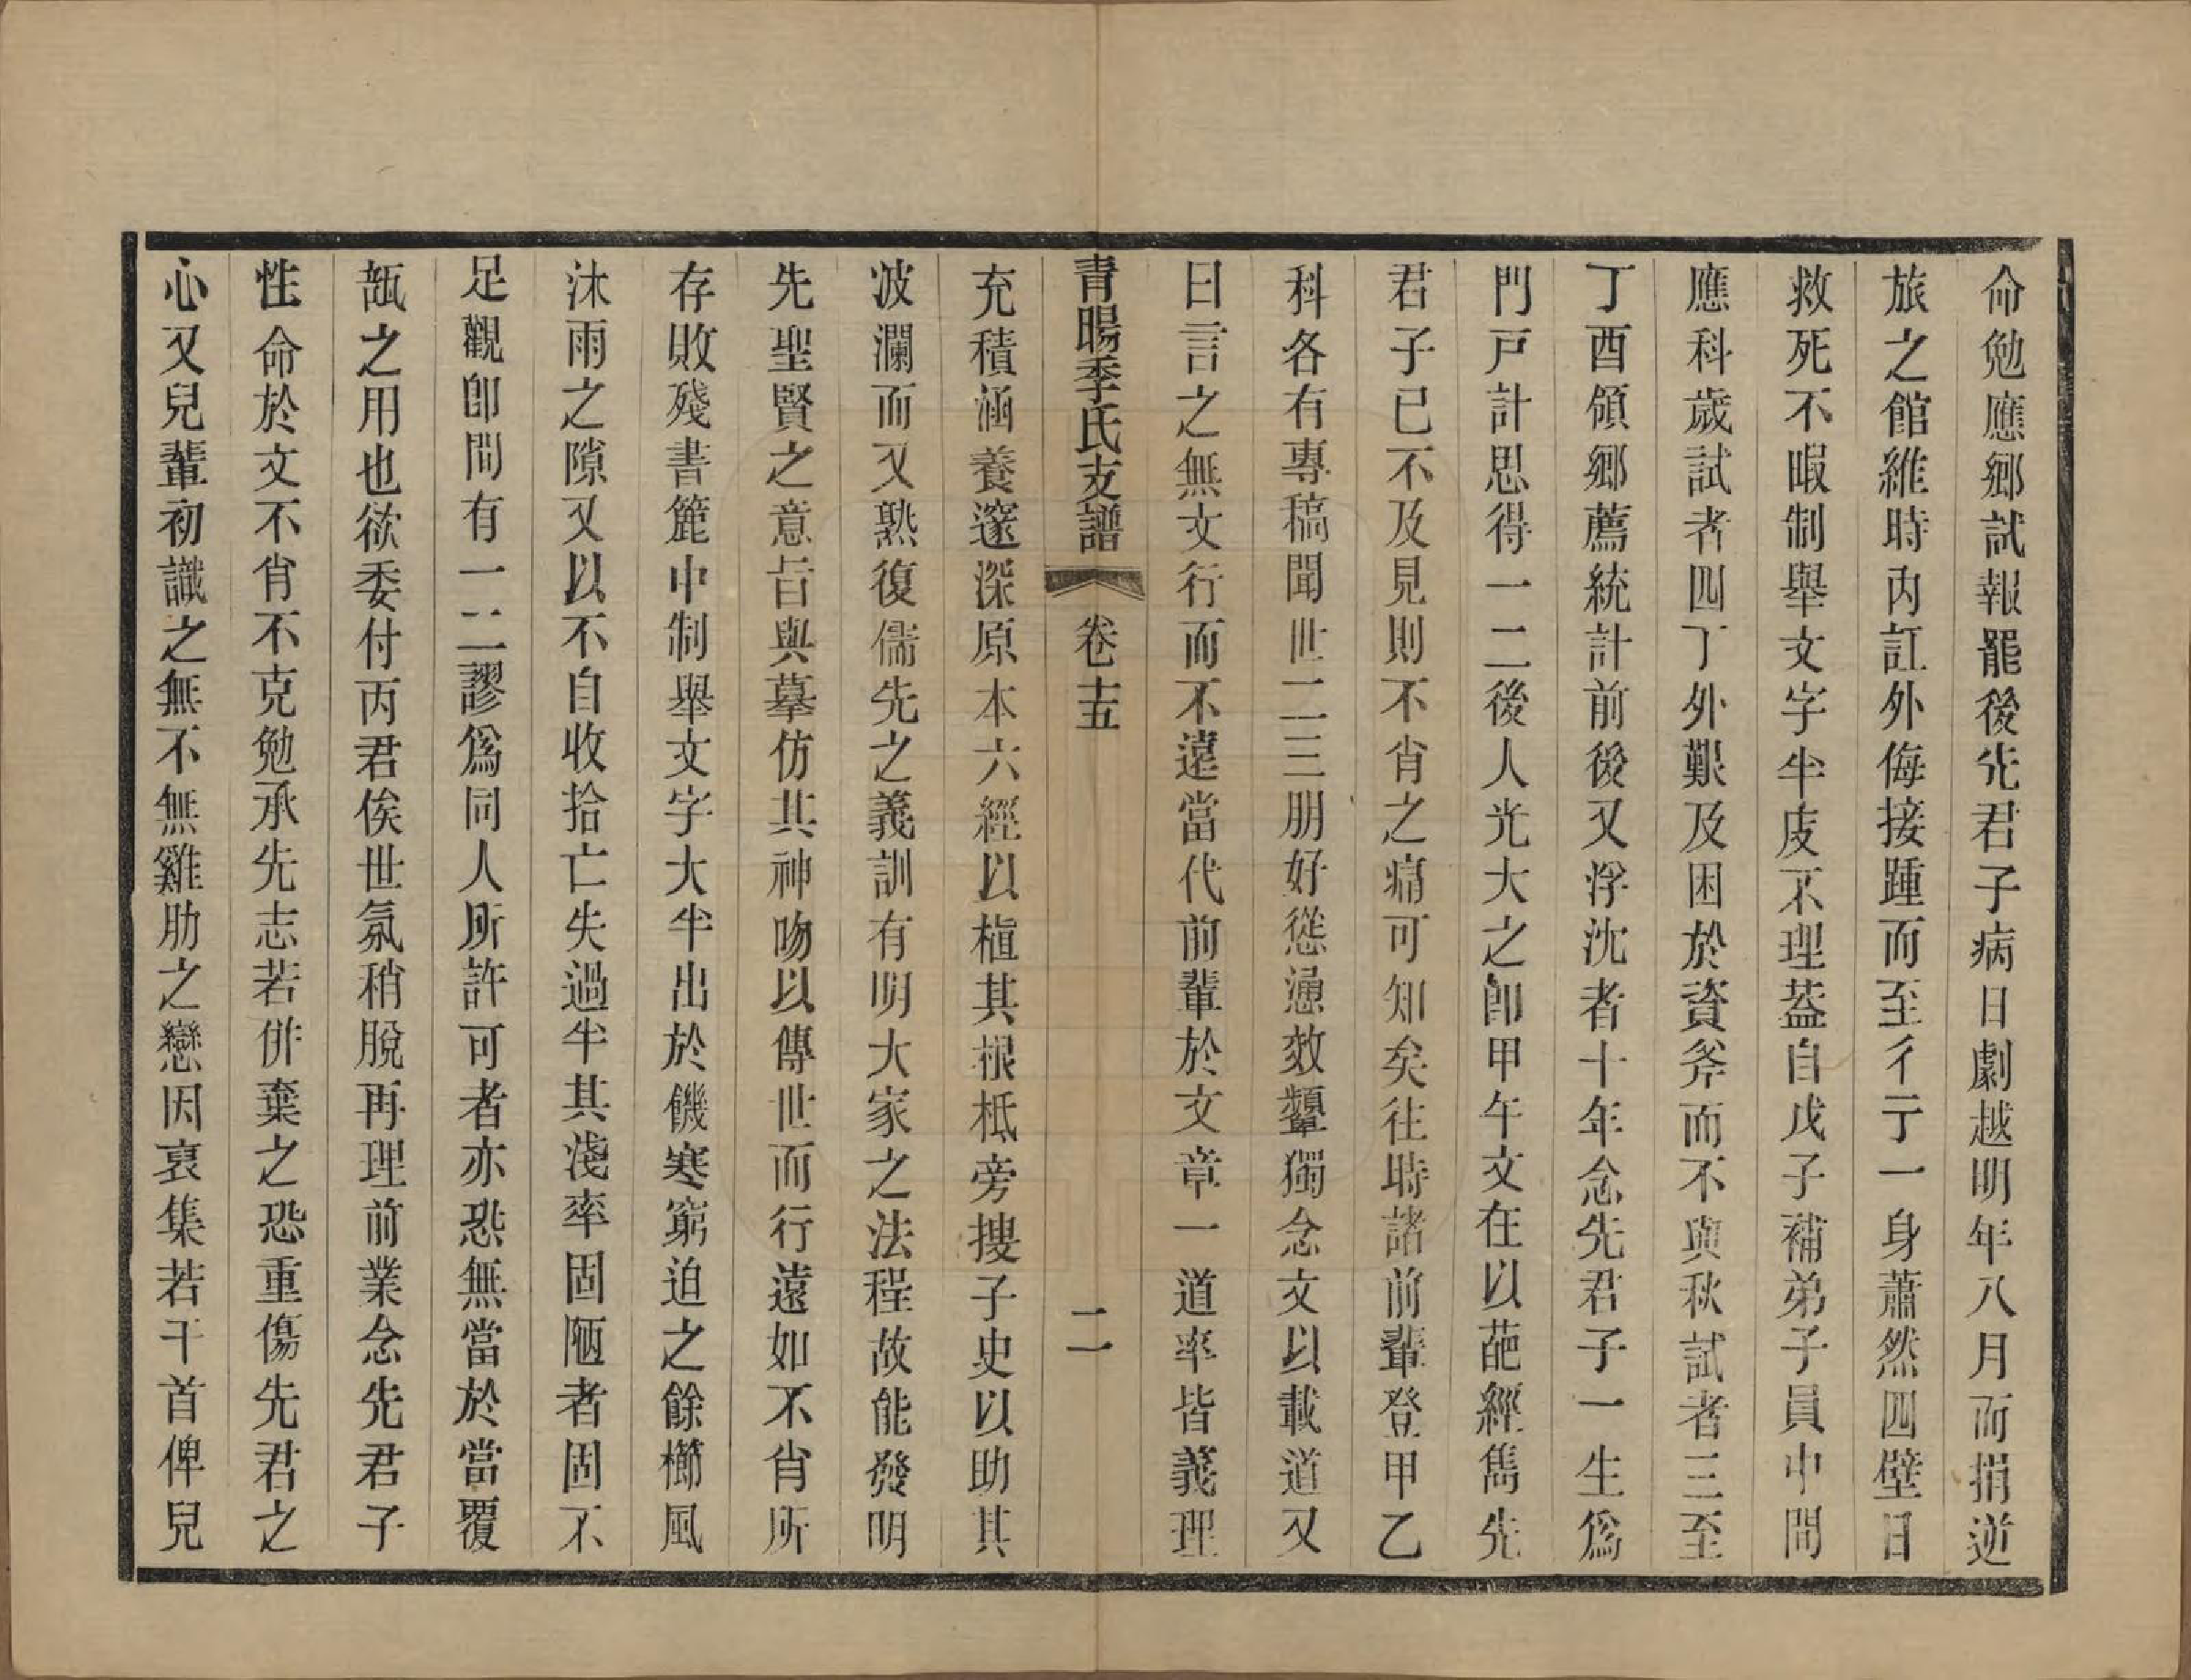 命勉應鄉試報罷後先君子病日劇越明年八月而捐逆
旅之館維時內訌外侮接踵而至彳亍一身蕭然四壁日
救死不暇制舉文字半庋不理葢自戊子補弟子員中間
應科歲試者四丁外艱及困於資斧而不與秋試者三至
丁酉領鄉薦統計前後又浮沈者十年念先君子一生爲
門戸計思得一二後人光大之卽甲午文在以葩經雋先
君子已不及見則不肖之痛可知矣往時諸前輩登甲乙
科各有專稿聞世二三朋好慫慂效顰獨念文以載道又
曰言之無文行而不遠當代前輩於文章一道率皆義理
青暘季氏支譜 卷十五 二
充積涵養邃深原本六經以植其根柢旁搜子史以助其
波瀾而又熟復儒先之義訓有明大家之法程故能發明
先聖賢之意旨與摹仿其神吻以傳世而行遠如不肖所
存敗殘書簏中制舉文字大半出於饑寒窮迫之餘櫛風
沐雨之隙又以不自收拾亡失過半其淺率固陋者固不
足觀卽間有一二謬爲同人所許可者亦恐無當於當覆
瓿之用也欲委付丙君俟世氛稍脫再理前業念先君子
性命於文不肖不克勉承先志若併棄之恐重傷先君之
心又兒輩初識之無不無雞肋之戀因裒集若干首俾兒